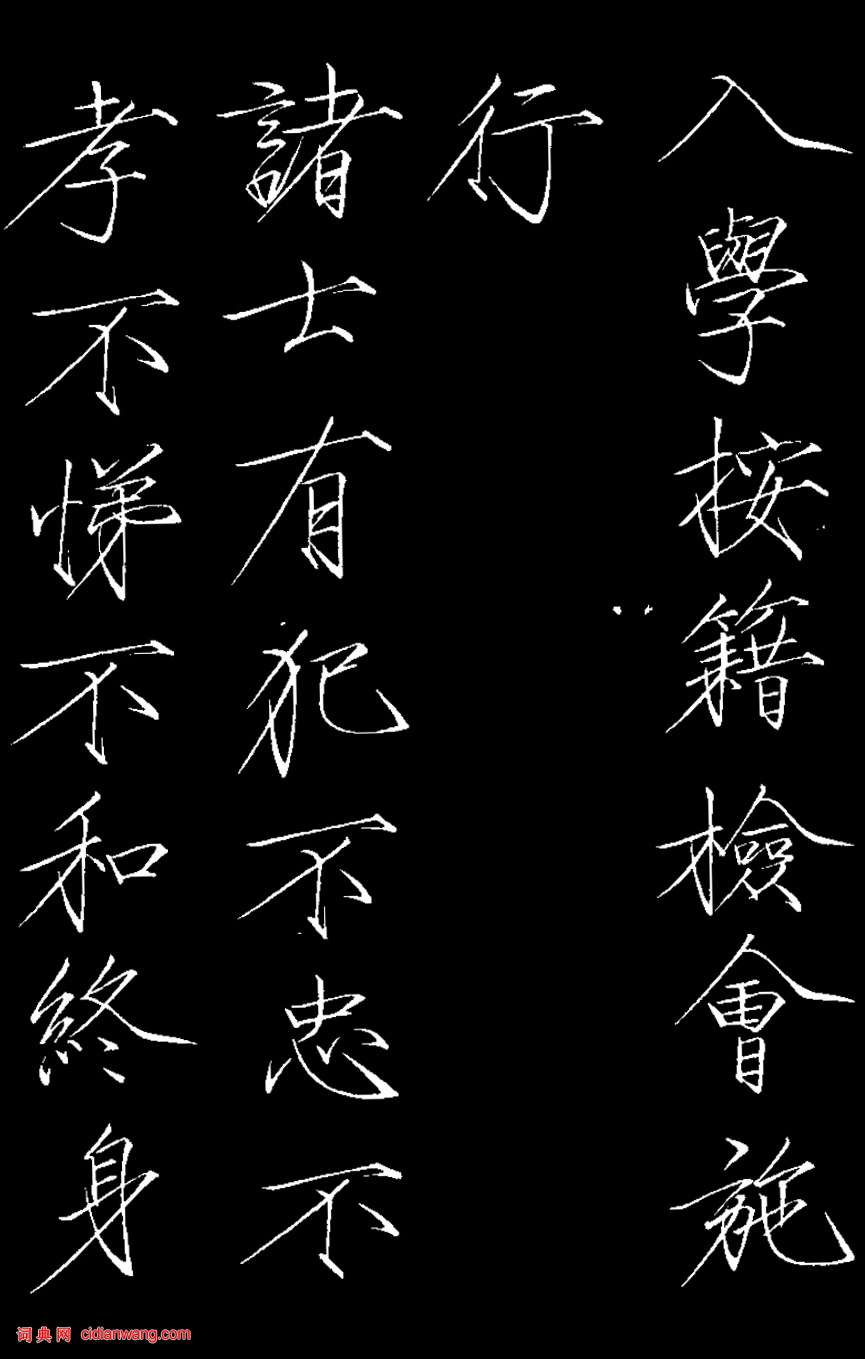 入學按籍檢會施
行
諸士有犯不忠不
孝不悌不和終身
词典网 cidianwang.com